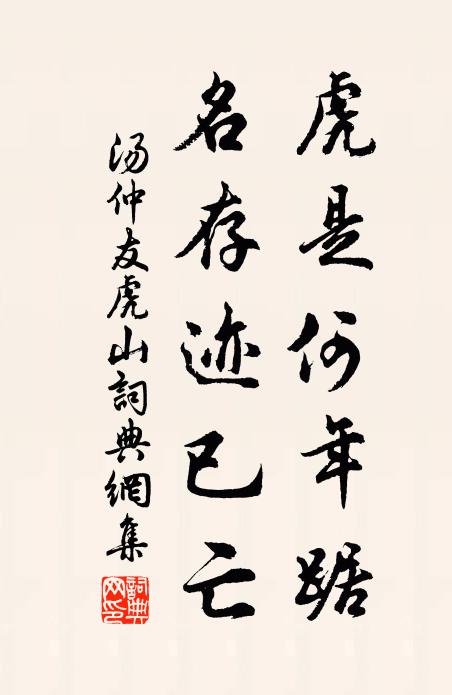 虎是何年踞
名存迹已亡
汤仲友虎山詞典網集
詞典网印